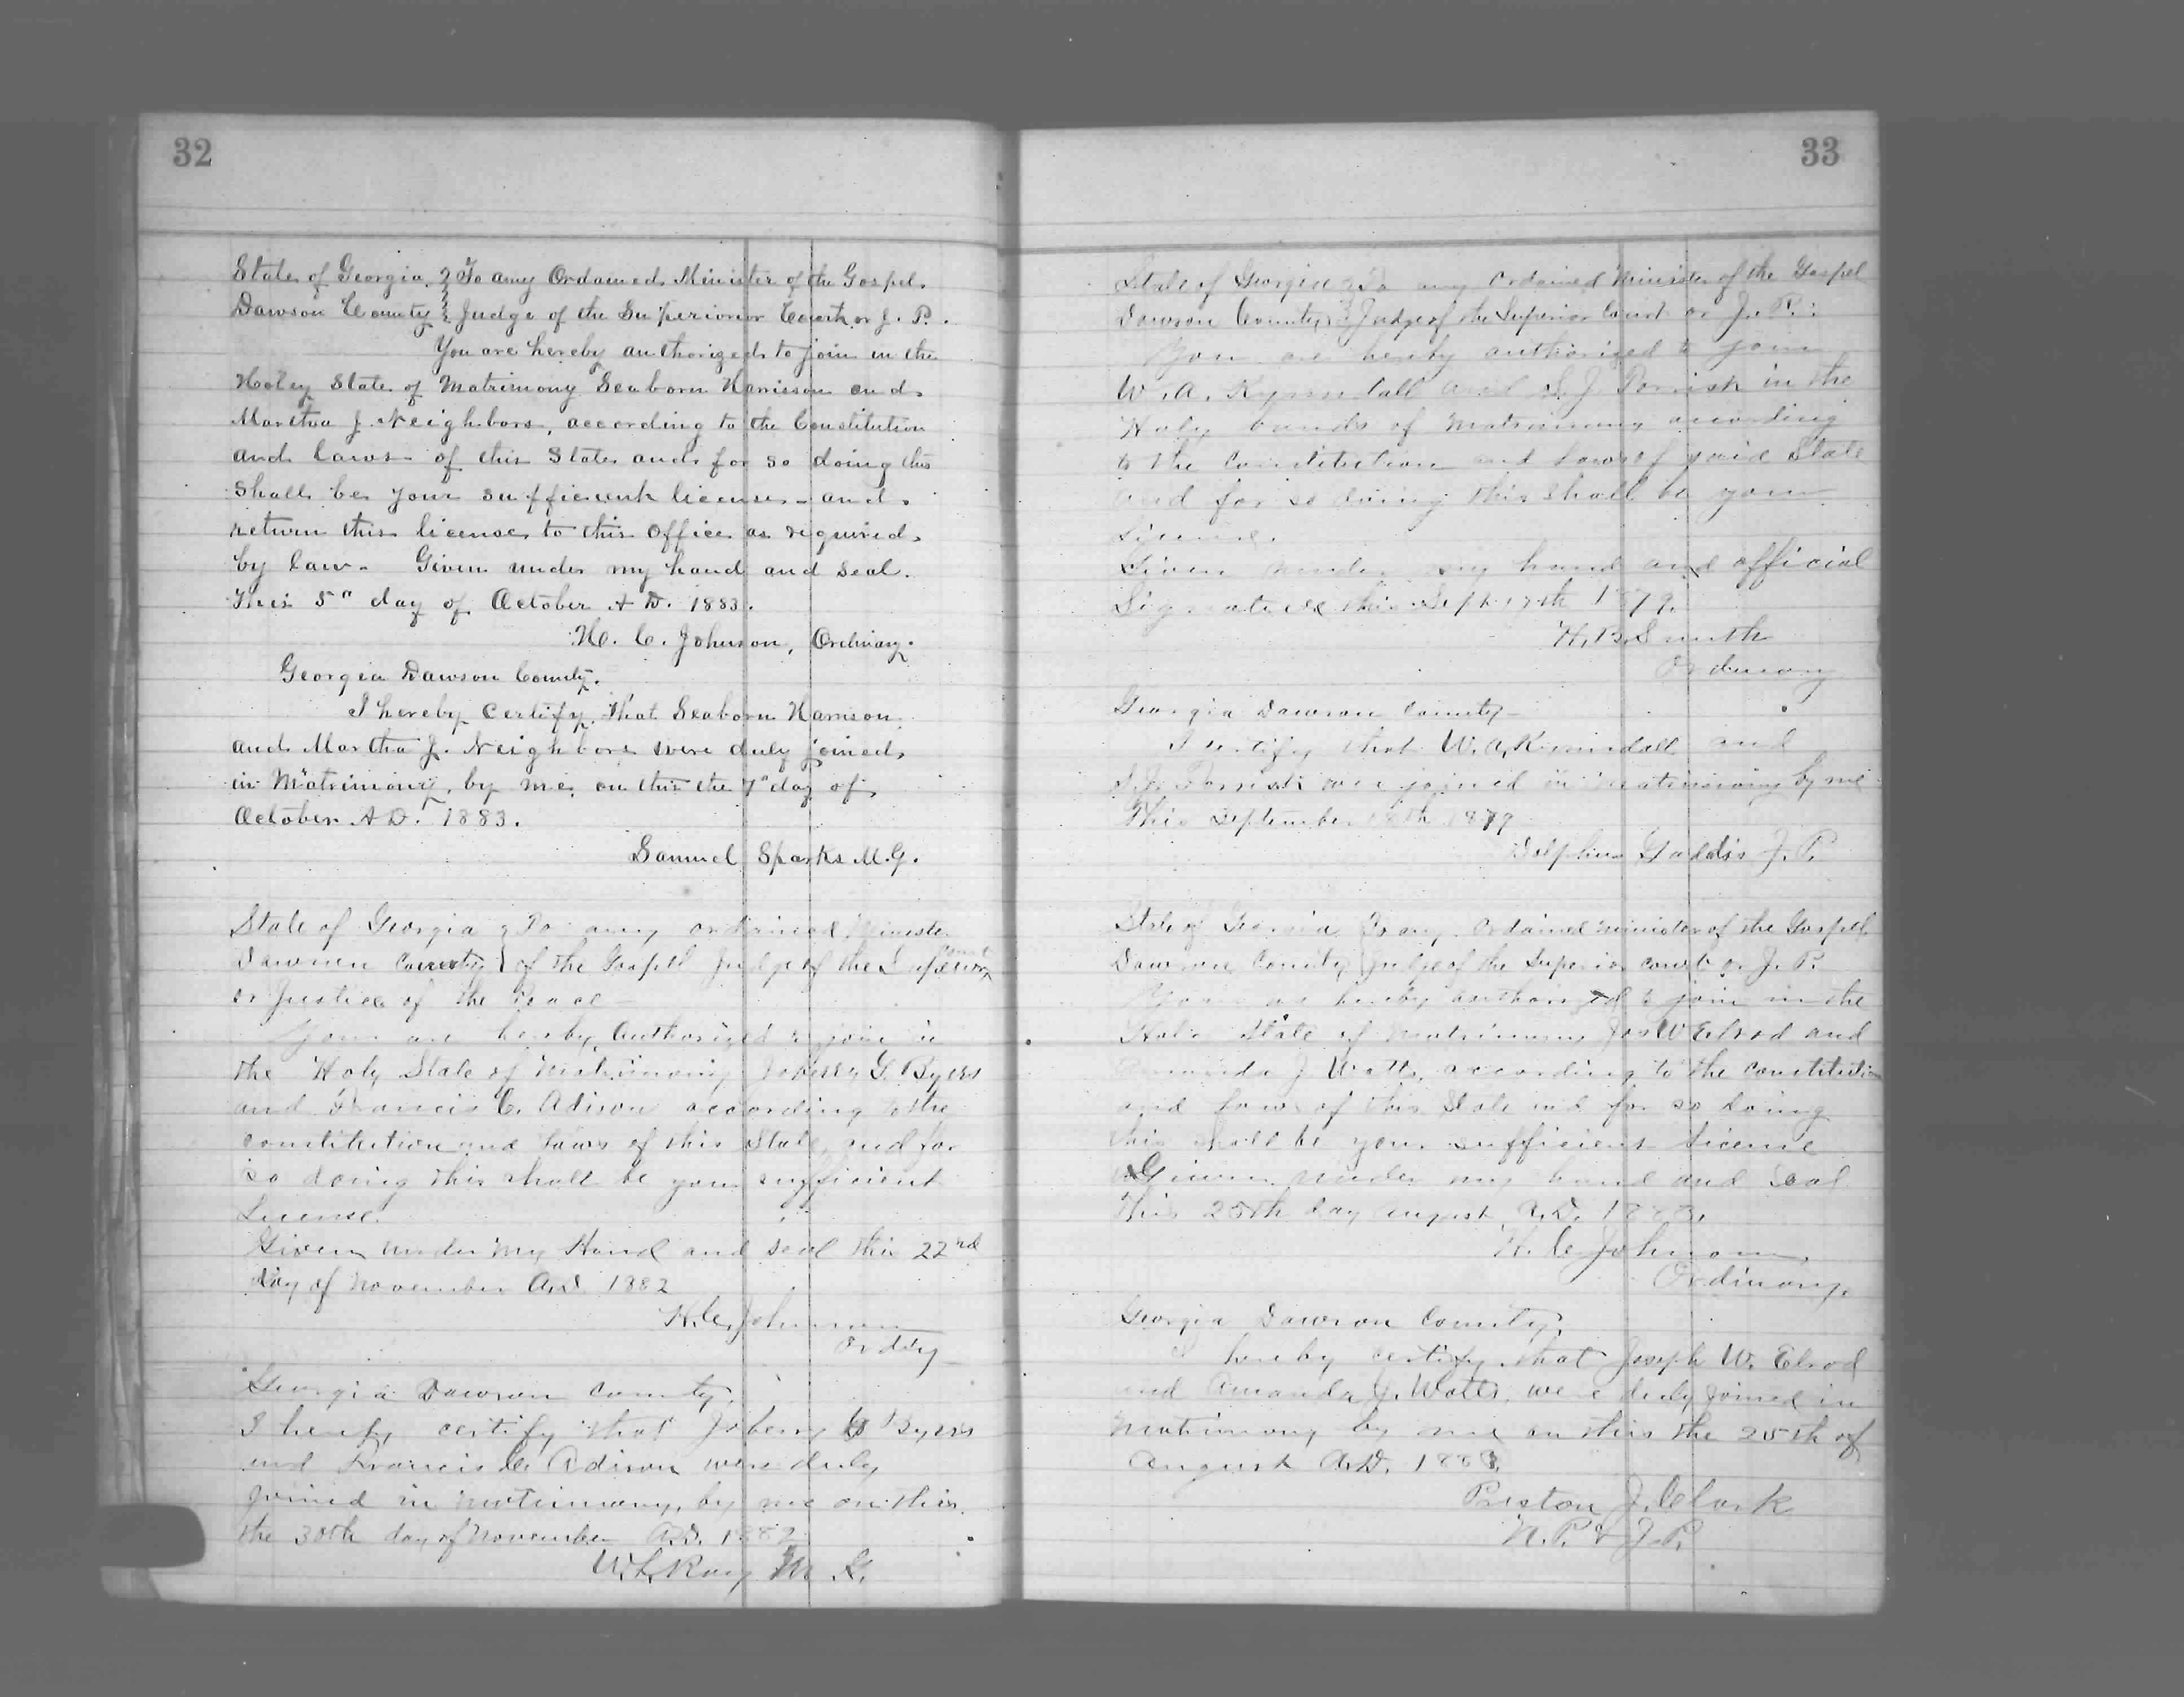 32
State of Georgia } To any Ordained Minister of the Gospel
Dawson County } Judge of the Superioror Court or J. P.
You are hereby authorized to join in the
Holey State of Matrimony Seaborn Harrison and
Martha J. Neighbors, according to the Constitution
and laws of this State and for so doing this
shall be your sufficient license - and
return this license to this Office as required
by law - Given under my hand and seal.
This 5" day of October A D. 1883.
H. C. Johnson, Ordinary.
Georgia Dawson County.
I hereby certify that Seaborn Harrison
and Martha J. Neighbors were duly joined
in Matrimony, by me, on this the 7" day of
October A D. 1883.
Samuel Sparks M. G.
State of Georgia } To any ordained Minister
Dawson County } of the Gospel Judge of the Superior Court
or Justice of the Peace -
You are hereby Authorized to join in
the Holy State of Matrimony Joberry G. Byers
and Francis C. Adison according to the
constitution and laws of this State and for
so doing this shall be your sufficient
License.
Given under my Hand and seal this 22nd
day of November A.D. 1882
H. C. Johnson
Ordry
Georgia Dawson County.
I hereby certify that Joberry G Byers
and Francis C. Adison were duly
joined in matrimony, by me on this
the 30th day of November A.D. 1882
W. L. Ray M. G.
33
State of Georgia } To any Ordained Minister of the Gospel
Dawson County } Judge of the Superior Court or J. P.:
You are hereby authorised to join
W. A. and S. J. Parrish in the
Holy bands of Matrimony according
to the Constitution and Laws of said State
and for so doing this shall be your
License.
Given under my hand and official
Signature this Sept 17th 1879.
H. B. Smith
Ordinary
Georgia Dawson County
I certify that W. A. and
S. J. Parrish were joined in matrimony by me
This September 18th 1879
Gaddis J. P.
State of Georgia } To any Ordained Minister of the Gospel
Dawson County } Judge of the Superior Court or J. P.
You are hereby authorized to join in the
Holy State of Matrimony Jos W Elrod and
Amanda J. Watts, according to the Constitution
and Laws of this State and for so doing
this shall be your sufficient License
Given under my hand and Seal
This 25th day August A.D. 1883.
H. C. Johnson,
Ordinary.
Georgia Dawson County.
I hereby certify that Joseph W. Elrod
and Amanda J. Watts were duly joined in
Matrimony by me on this the 25th of
August A.D. 1883.
Preston J. Clark
N. P. & J. P.